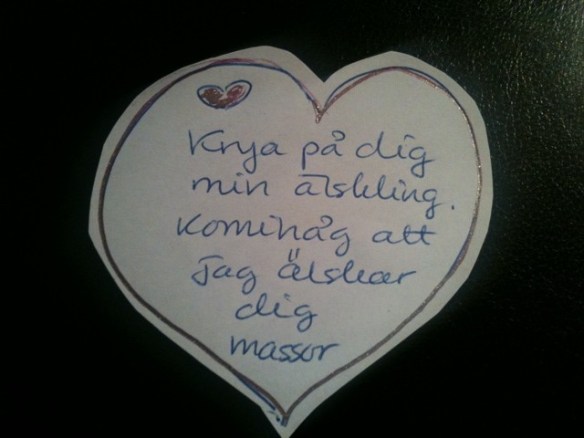 Krya på dig
min älskling.
Kom ihåg att
jag älskar
dig
massor